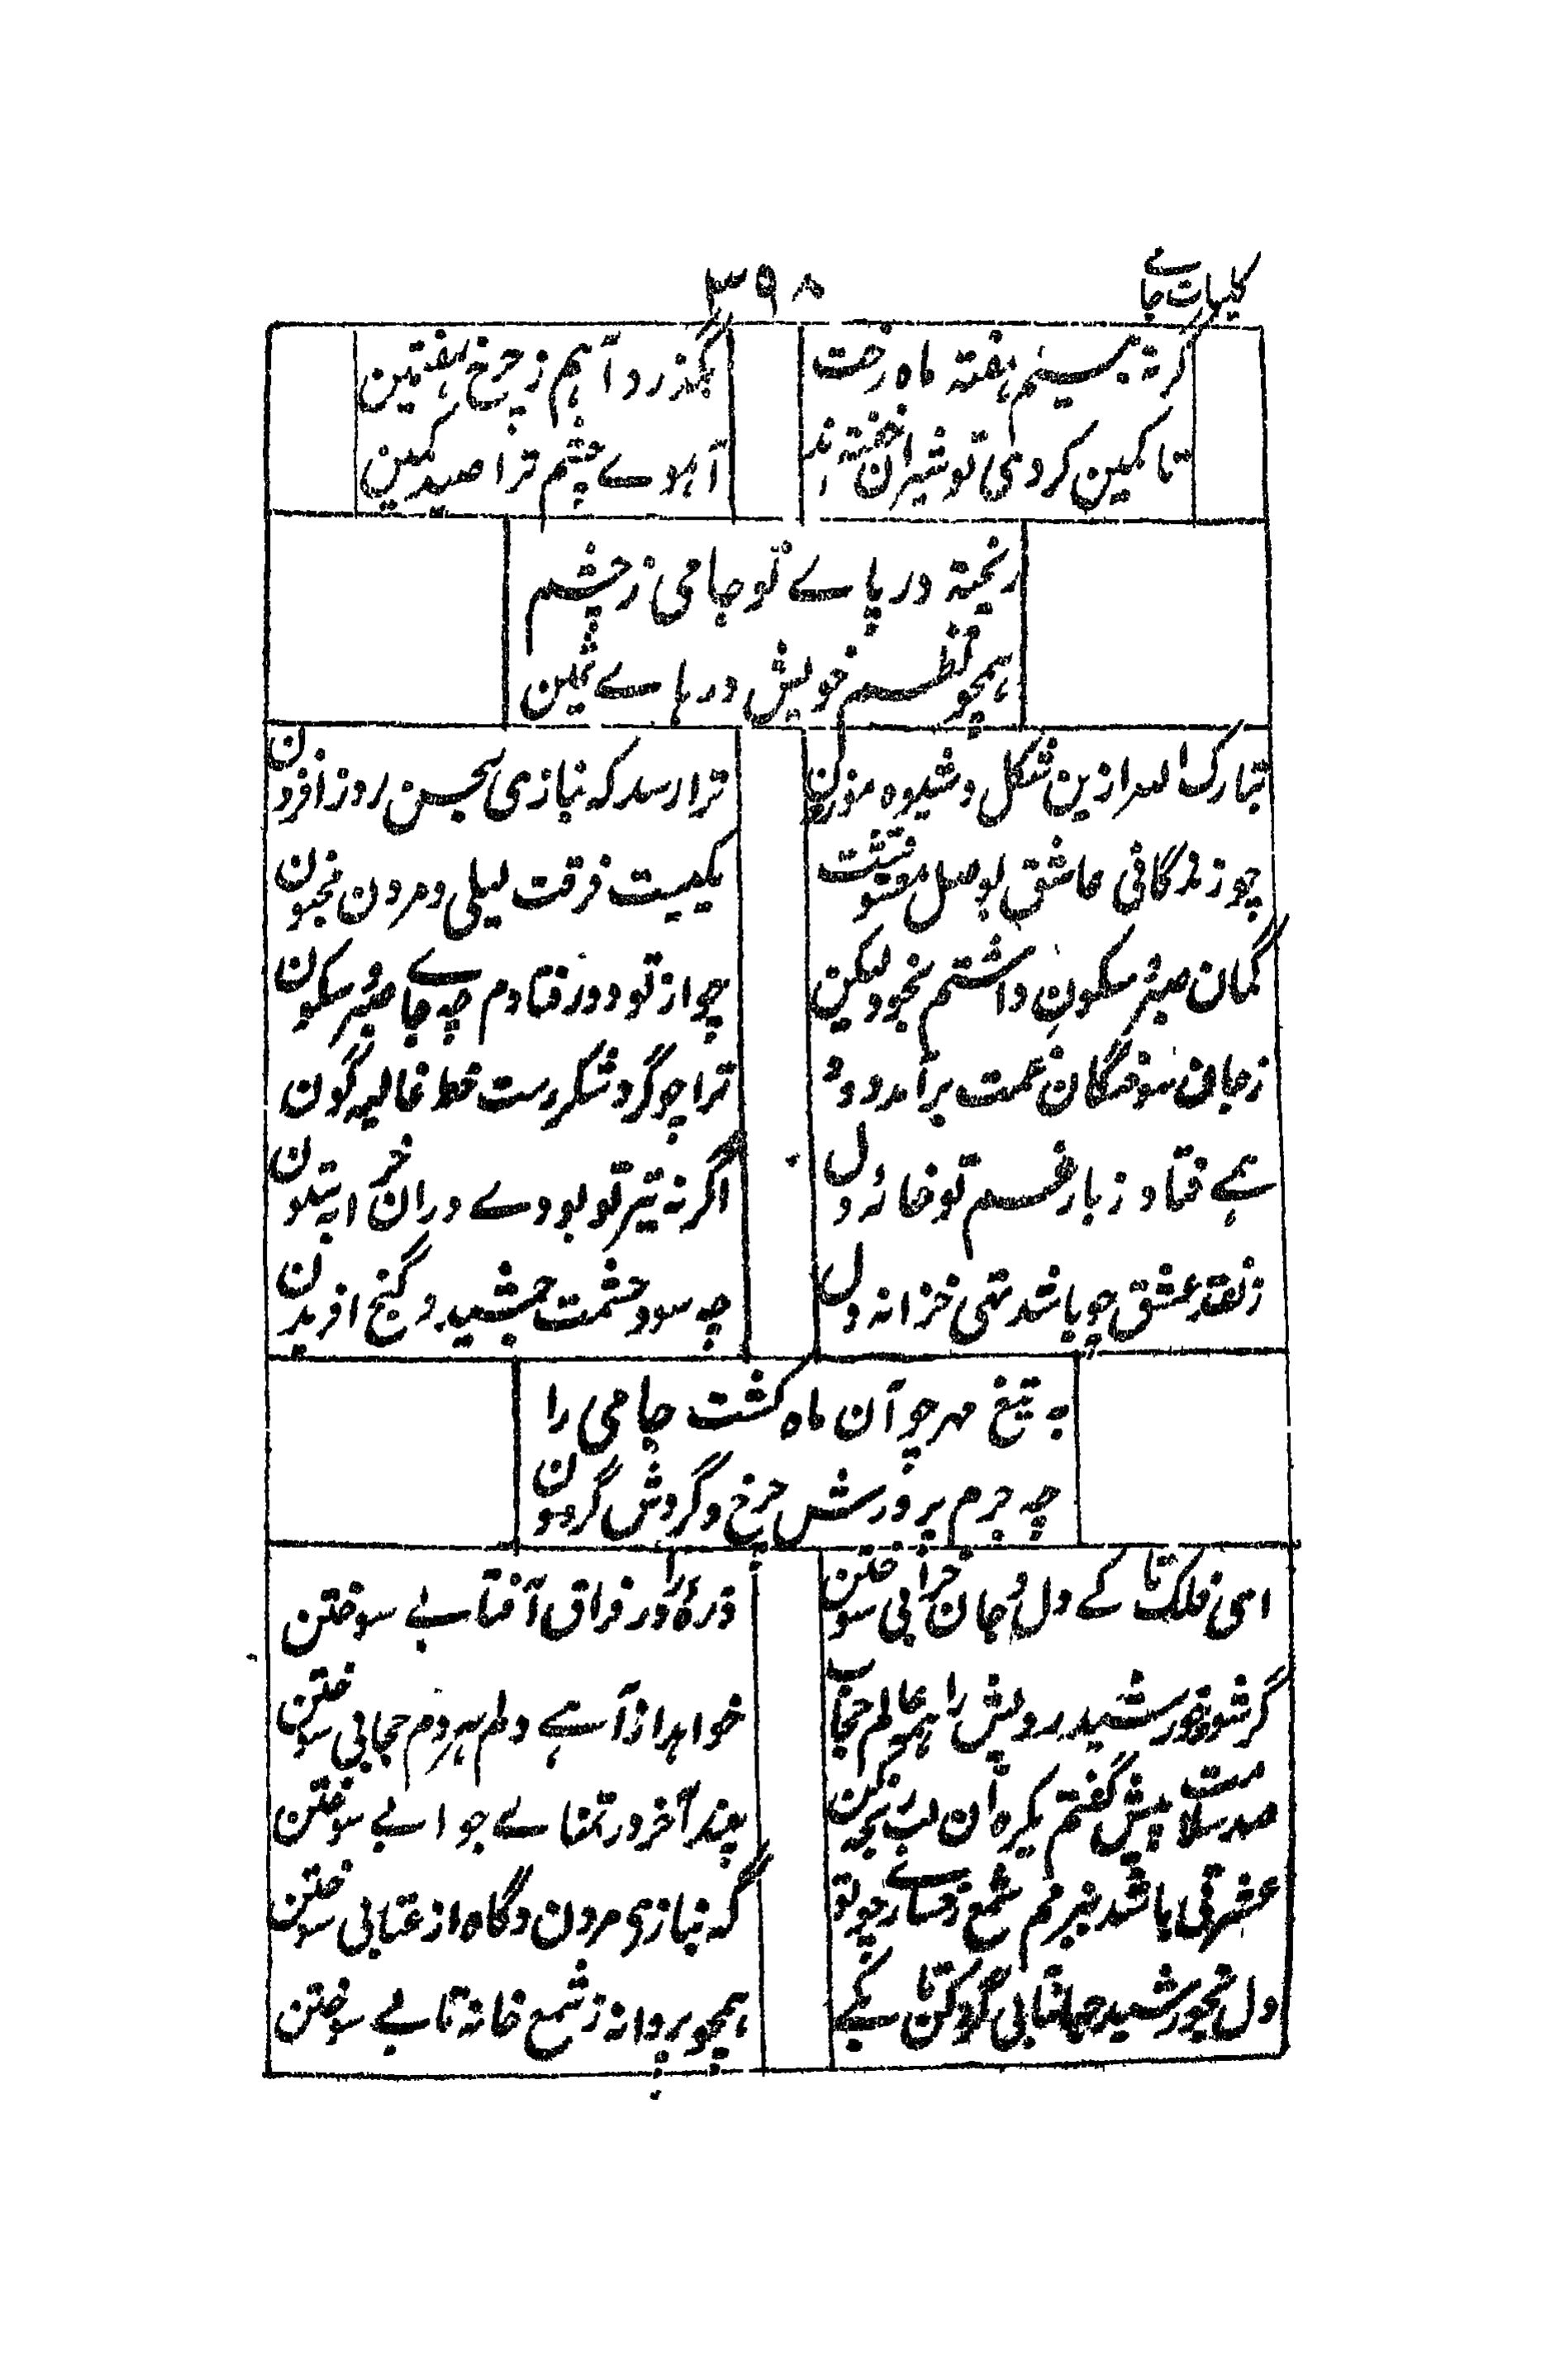 کلیات جامے
۳۹۸
گر نہ بینم ہفتہ ماہ رخت
بگذرد آہم ز چرخ ہفتمین
تا کمین کردی تو شیران خفتہ اند
آہوے چشم ترا صید کمین
ریختہ در پاے تو جامی ز چشم
ہمچو نظم خویش درہاے ثمین
تبارک اللہ ازین شکل و شیوہ موزون
ترا رسد کہ بنازی بحسن روز افزون
چو زندگانی عاشق بوصل معشوقست
یکیست فرقت لیلی و مردن مجنون
گمان صبر و سکون داشتم بخود لیکن
چو از تو دور فتادم چہ جاے صبر و سکون
ز جان سوختگان غمت برآمد دود
ترا چو گرد شکر رست خط غالیہ گون
ہمے فتاد ز بار غم تو خانۂ دل
اگر نہ تیر تو بودے دران خرابہ ستون
ز نقد عشق چو باشد تہی خزانہ دل
چہ سود حشمت جمشید و گنج افریدون
بہ تیغ مہر چو آن ماہ کشت جامی را
چہ جرم پرورش چرخ و گردش گردون
ای فلک تا کے دل و جان خرابی سوختن
ذرۂ را در فراق آفتابے سوختن
گر شود خورشید رویش را ہمہ عالم حجاب
خواہد از آہے دلم ہر دم حجابی سوختن
صد سلامت پیش گفتم یکرہ آن لب رنجہ کن
چند آخر در تمناے جوابے سوختن
عشرتی باشد ببزم شمع رخسارے چو تو
گہ بنازی مردن و گاہ از عتابی سوختن
دل بخورشید جہانتابی گرو کن تا بکے
ہمچو پروانہ ز شمع خانہ تابے سوختن